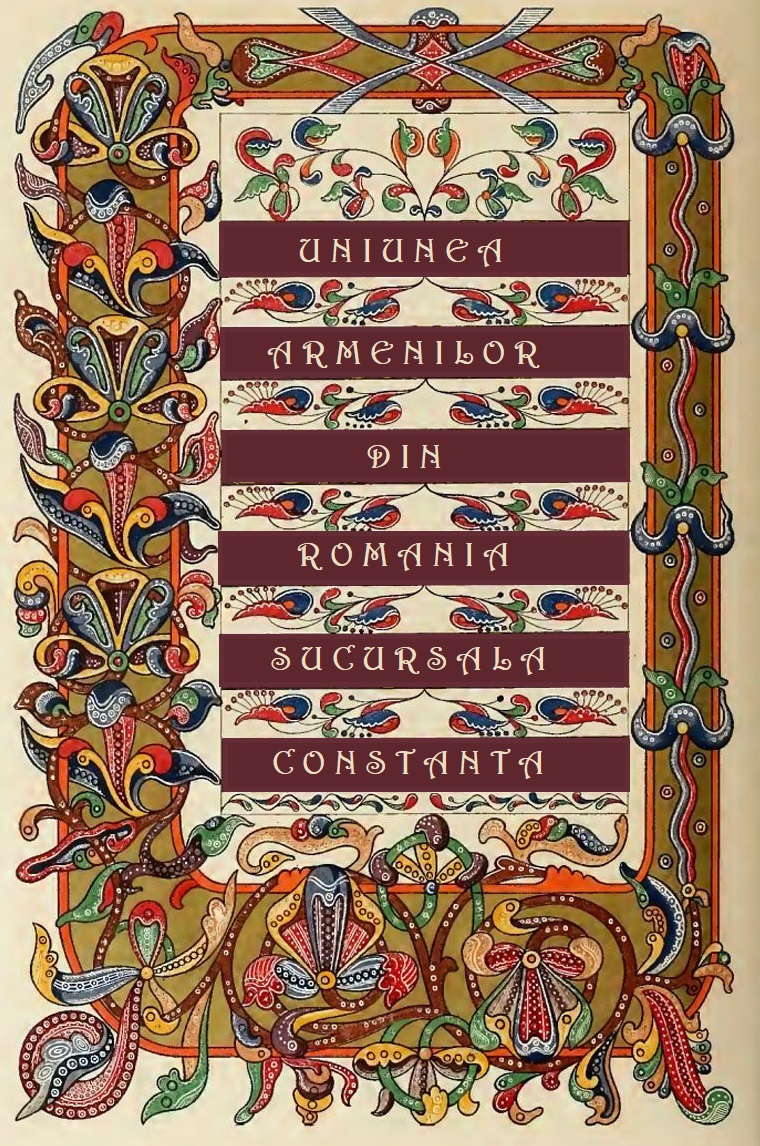 UNIUNEA
ARMENILOR
DIN
ROMANIA
SUCURSALA
CONSTANTA